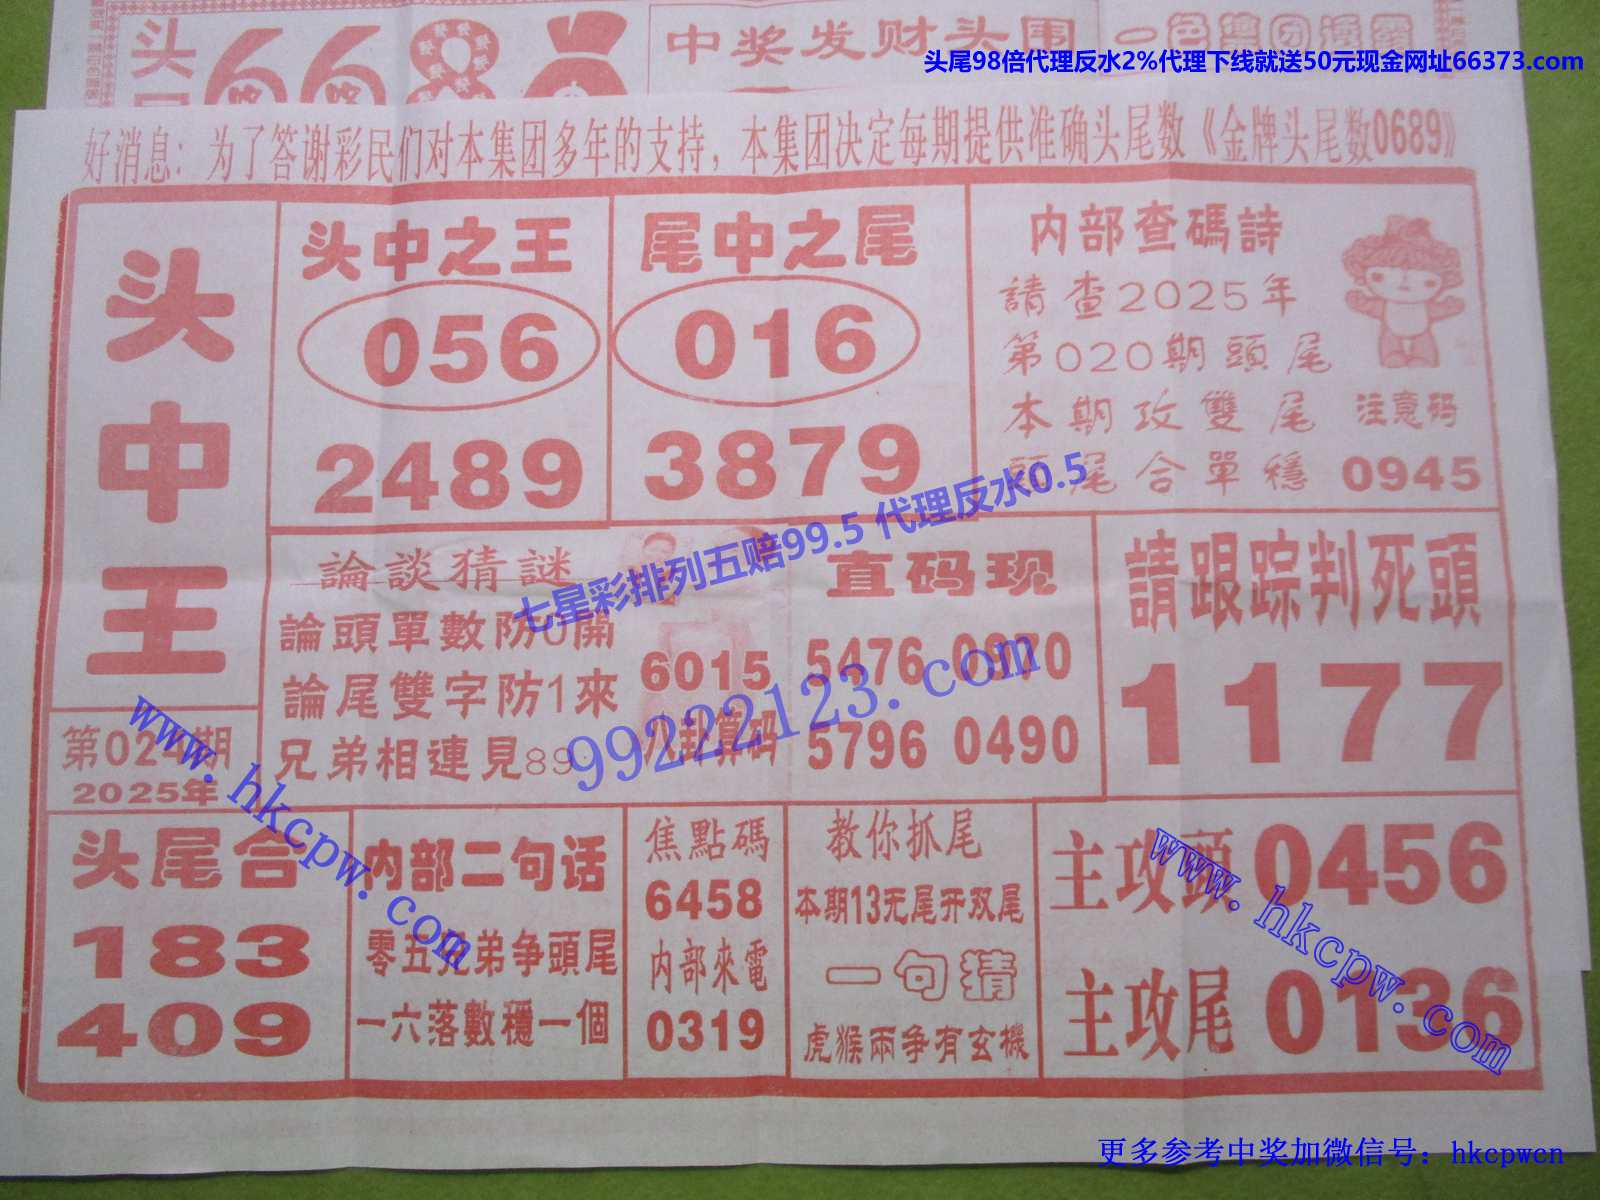 中奖发财头围
头
668
头尾98倍代理反水2%代理下线就送50元现金网址66373.com
好消息：为了答谢彩民们对本集团多年的支持，本集团决定每期提供准确头尾数《金牌头尾数0689》
头中王
第024期
2025年
头中之王
056
2489
尾中之尾
016
3879
内部查碼詩
請查2025年
第020期頭尾
本期攻雙尾
頭尾合單穩
注意码
0945
論談猜謎
論頭單數防0開
論尾雙字防1來
兄弟相連見89
6015
八卦算码
直码现
5476 0970
5796 0490
請跟踪判死頭
1177
头尾合
183
409
内部二句话
零五兄弟争頭尾
一六落數穩一個
焦點碼
6458
内部來電
0319
教你抓尾
本期13无尾开双尾
一句猜
虎猴兩争有玄機
主攻頭 0456
主攻尾 0136
七星彩排列五赔99.5 代理反水0.5
99222123.com
www.hkcpw.com
www.hkcpw.com
更多参考中奖加微信号：hkcpwcn